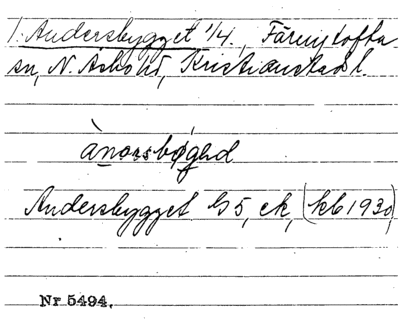 1. Andersbygget 1/4, Färingtofta
sn, N. Åsbo hd, Kristianstads l.
Andersbygget G5, ek, (kb 1930)
Nr 5494.